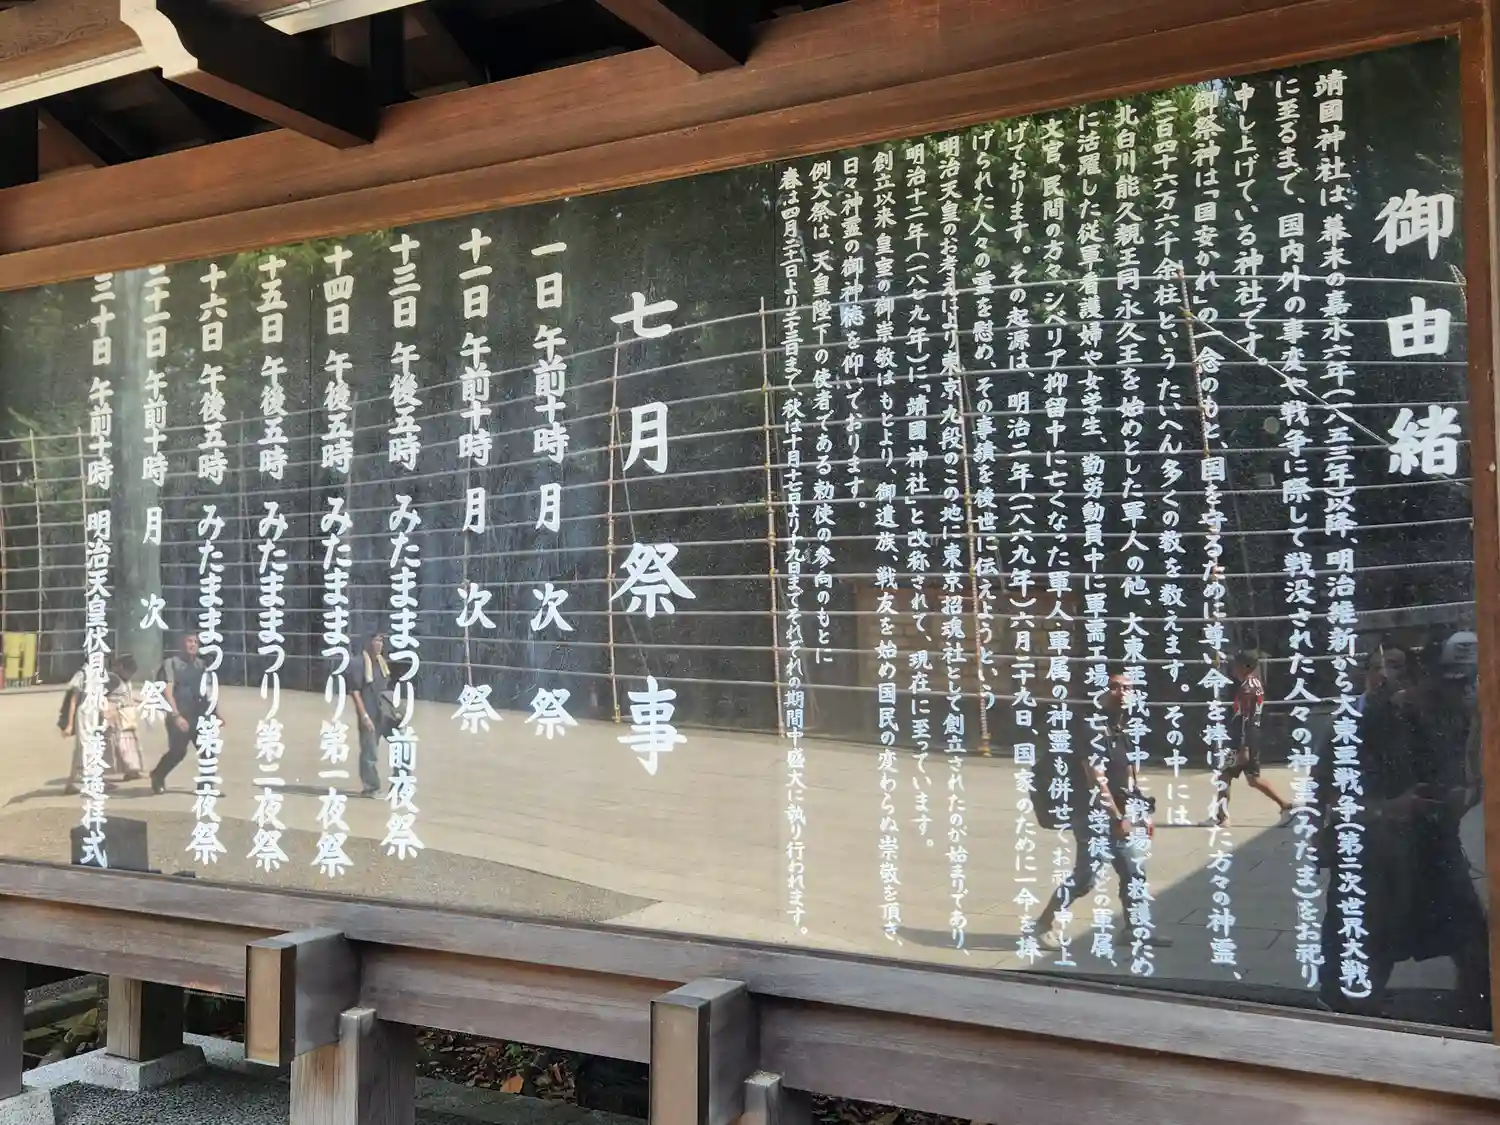 御由緒
靖國神社は、幕末の嘉永六年(一八五三年)以降、明治維新から大東亜戦争(第二次世界大戦)
に至るまで、国内外の事変や戦争に際して戦没された人々の神霊(みたま)をお祀り
申し上げている神社です。
御祭神は「国安かれ」の一念のもと、国を守るために尊い命を捧げられた方々の神霊、
二百四十六万六千余柱というたいへん多くの数を数えます。その中には
北白川能久親王同永久王を始めとした軍人の他、大東亜戦争中に戦場で救護のため
に活躍した従軍看護婦や女学生、勤労動員中に軍需工場で亡くなった学徒などの軍属、
文官、民間の方々、シベリア抑留中に亡くなった軍人・軍属の神霊も併せてお祀り申し上
げております。その起源は、明治二年(一八六九年)六月二十九日、国家のために一命を捧
げられた人々の霊を慰め、その事績を後世に伝えようという
明治天皇のお考えにより東京九段のこの地に東京招魂社として創立されたのが始まりであり、
明治十二年(一八七九年)に「靖國神社」と改称されて、現在に至っています。
創立以来皇室の御崇敬はもとより、御遺族、戦友を始め国民の変わらぬ崇敬を頂き、
日々神霊の御神徳を仰いでおります。
例大祭は、天皇陛下の使者である勅使の参向のもとに
春は四月二十一日より二十三日まで、秋は十月十七日より十九日までそれぞれの期間中盛大に執り行われます。
七月祭事
一日 午前十時 月次祭
十一日 午前十時 月次祭
十三日 午後五時 みたままつり前夜祭
十四日 午後五時 みたままつり第一夜祭
十五日 午後五時 みたままつり第二夜祭
十六日 午後五時 みたままつり第三夜祭
二十一日 午前十時 月次祭
三十日 午前十時 明治天皇伏見桃山陵遥拝式